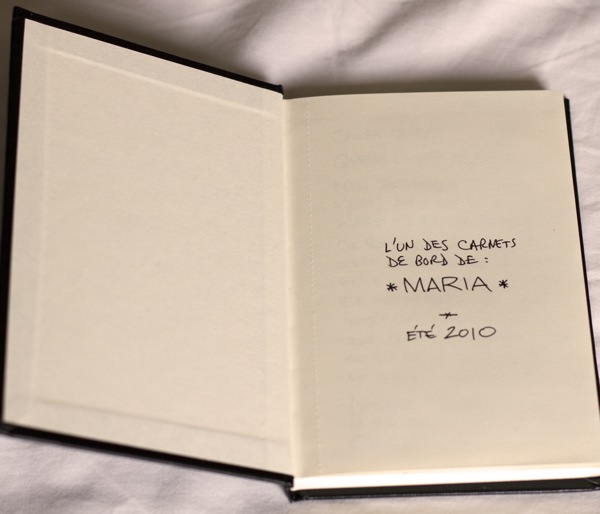 L'UN DES CARNETS
DE BORD DE :
* MARIA *
ÉTÉ 2010